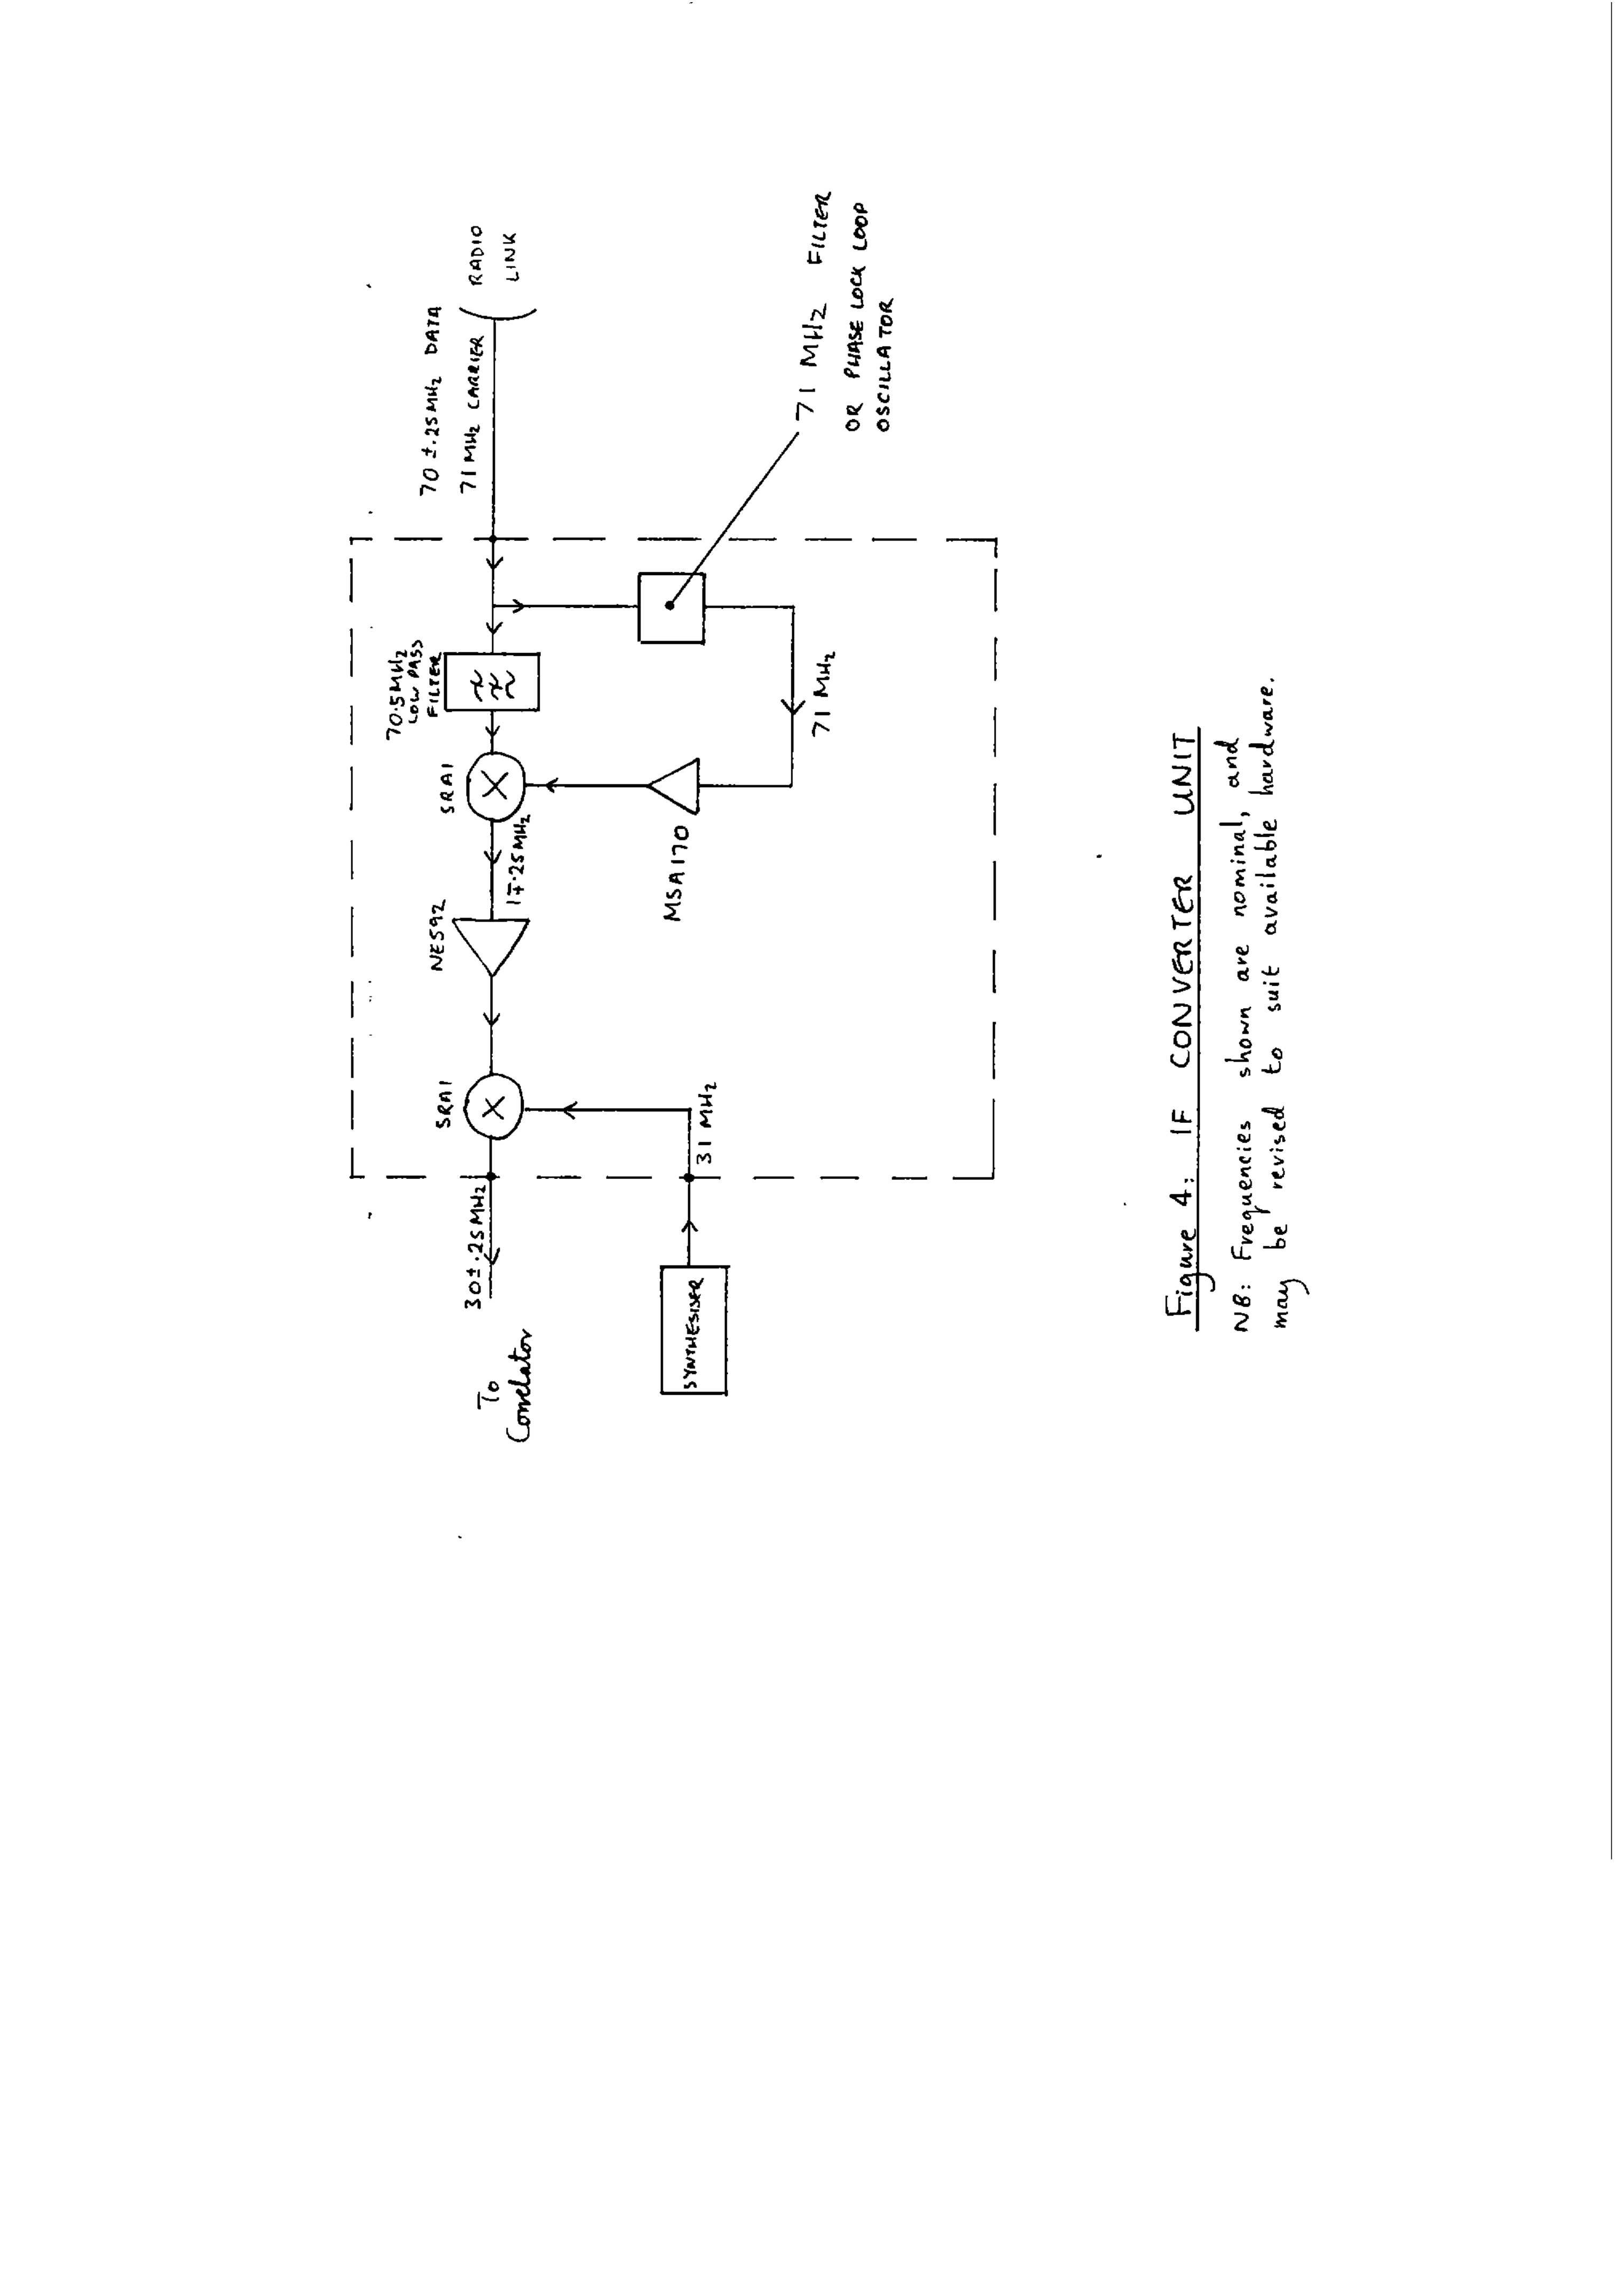 To
Correlator
30±.25MHz
SRA1
NE592
1∓.25MHz
SRA1
70.5MHz
LOW PASS
FILTER
70±.25MHz DATA
71MHz CARRIER
RADIO
LINK
SYNTHESISER
31 MHz
MSA170
71 MHz
71 MHz FILTER
OR PHASE LOCK LOOP
OSCILLATOR
Figure 4: IF CONVERTER UNIT
NB: Frequencies shown are nominal, and
may be revised to suit available hardware.